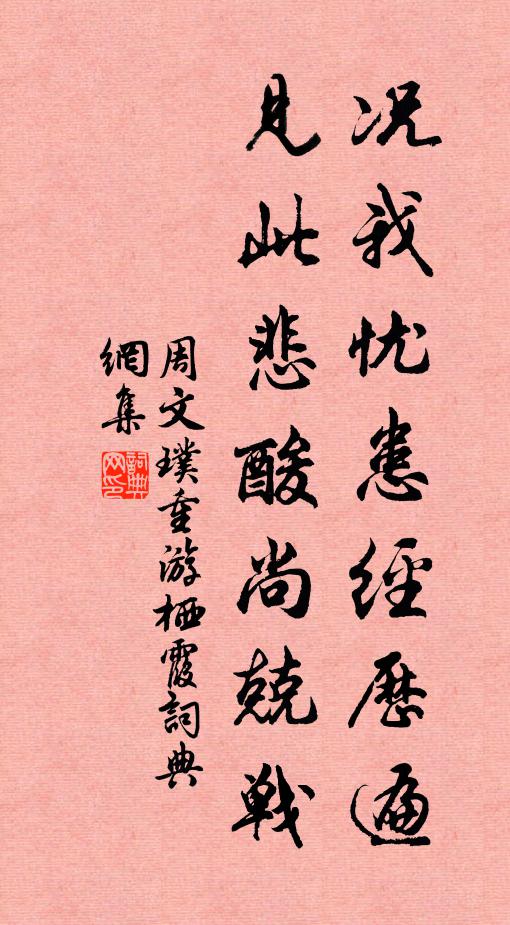 况我忧患經歷遍
見此悲酸尚兢戰
周文璞重游栖霞詞典
網集
詞典網印